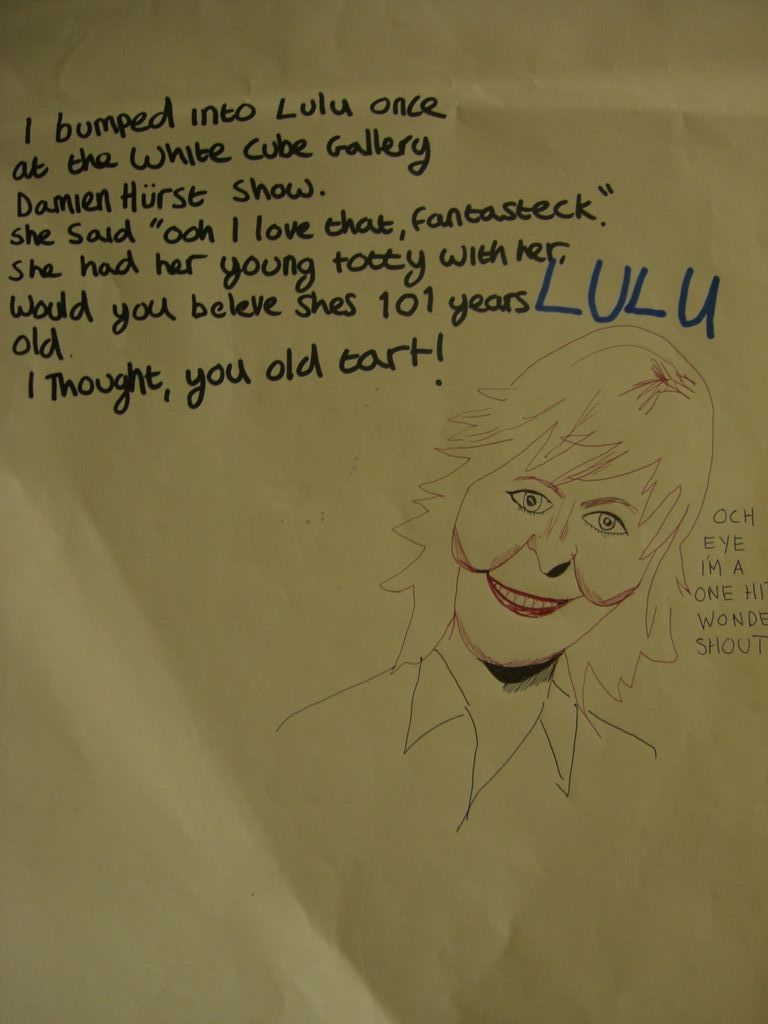 I bumped into Lulu once
at the White Cube Gallery
Damien Hürst Show.
She Said "ooh I love that, fantasteck".
She had her young totty with her.
Would you beleve Shes 101 years
old.
I Thought, you old tart!
LULU
OCH
EYE
I'M A
ONE HIT
WONDE
SHOUT